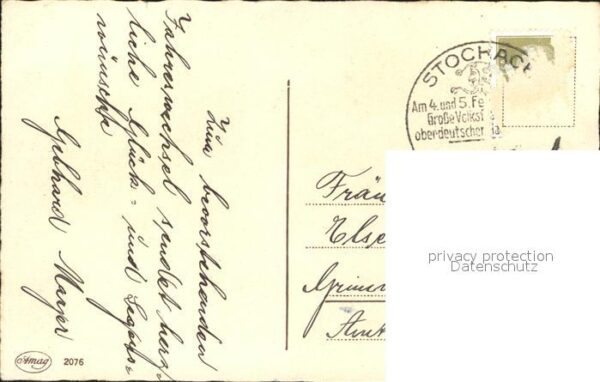 Zum bevorstehenden
Jahreswechsel sendet herz-
liche Glück- und Segens-
wünsche
Gebhard Mayer
STOCKACH
Am 4. und 5. Fe
Große Volksf
oberdeutscher
Fräu
Else
privacy protection
Datenschutz
Amag 2076